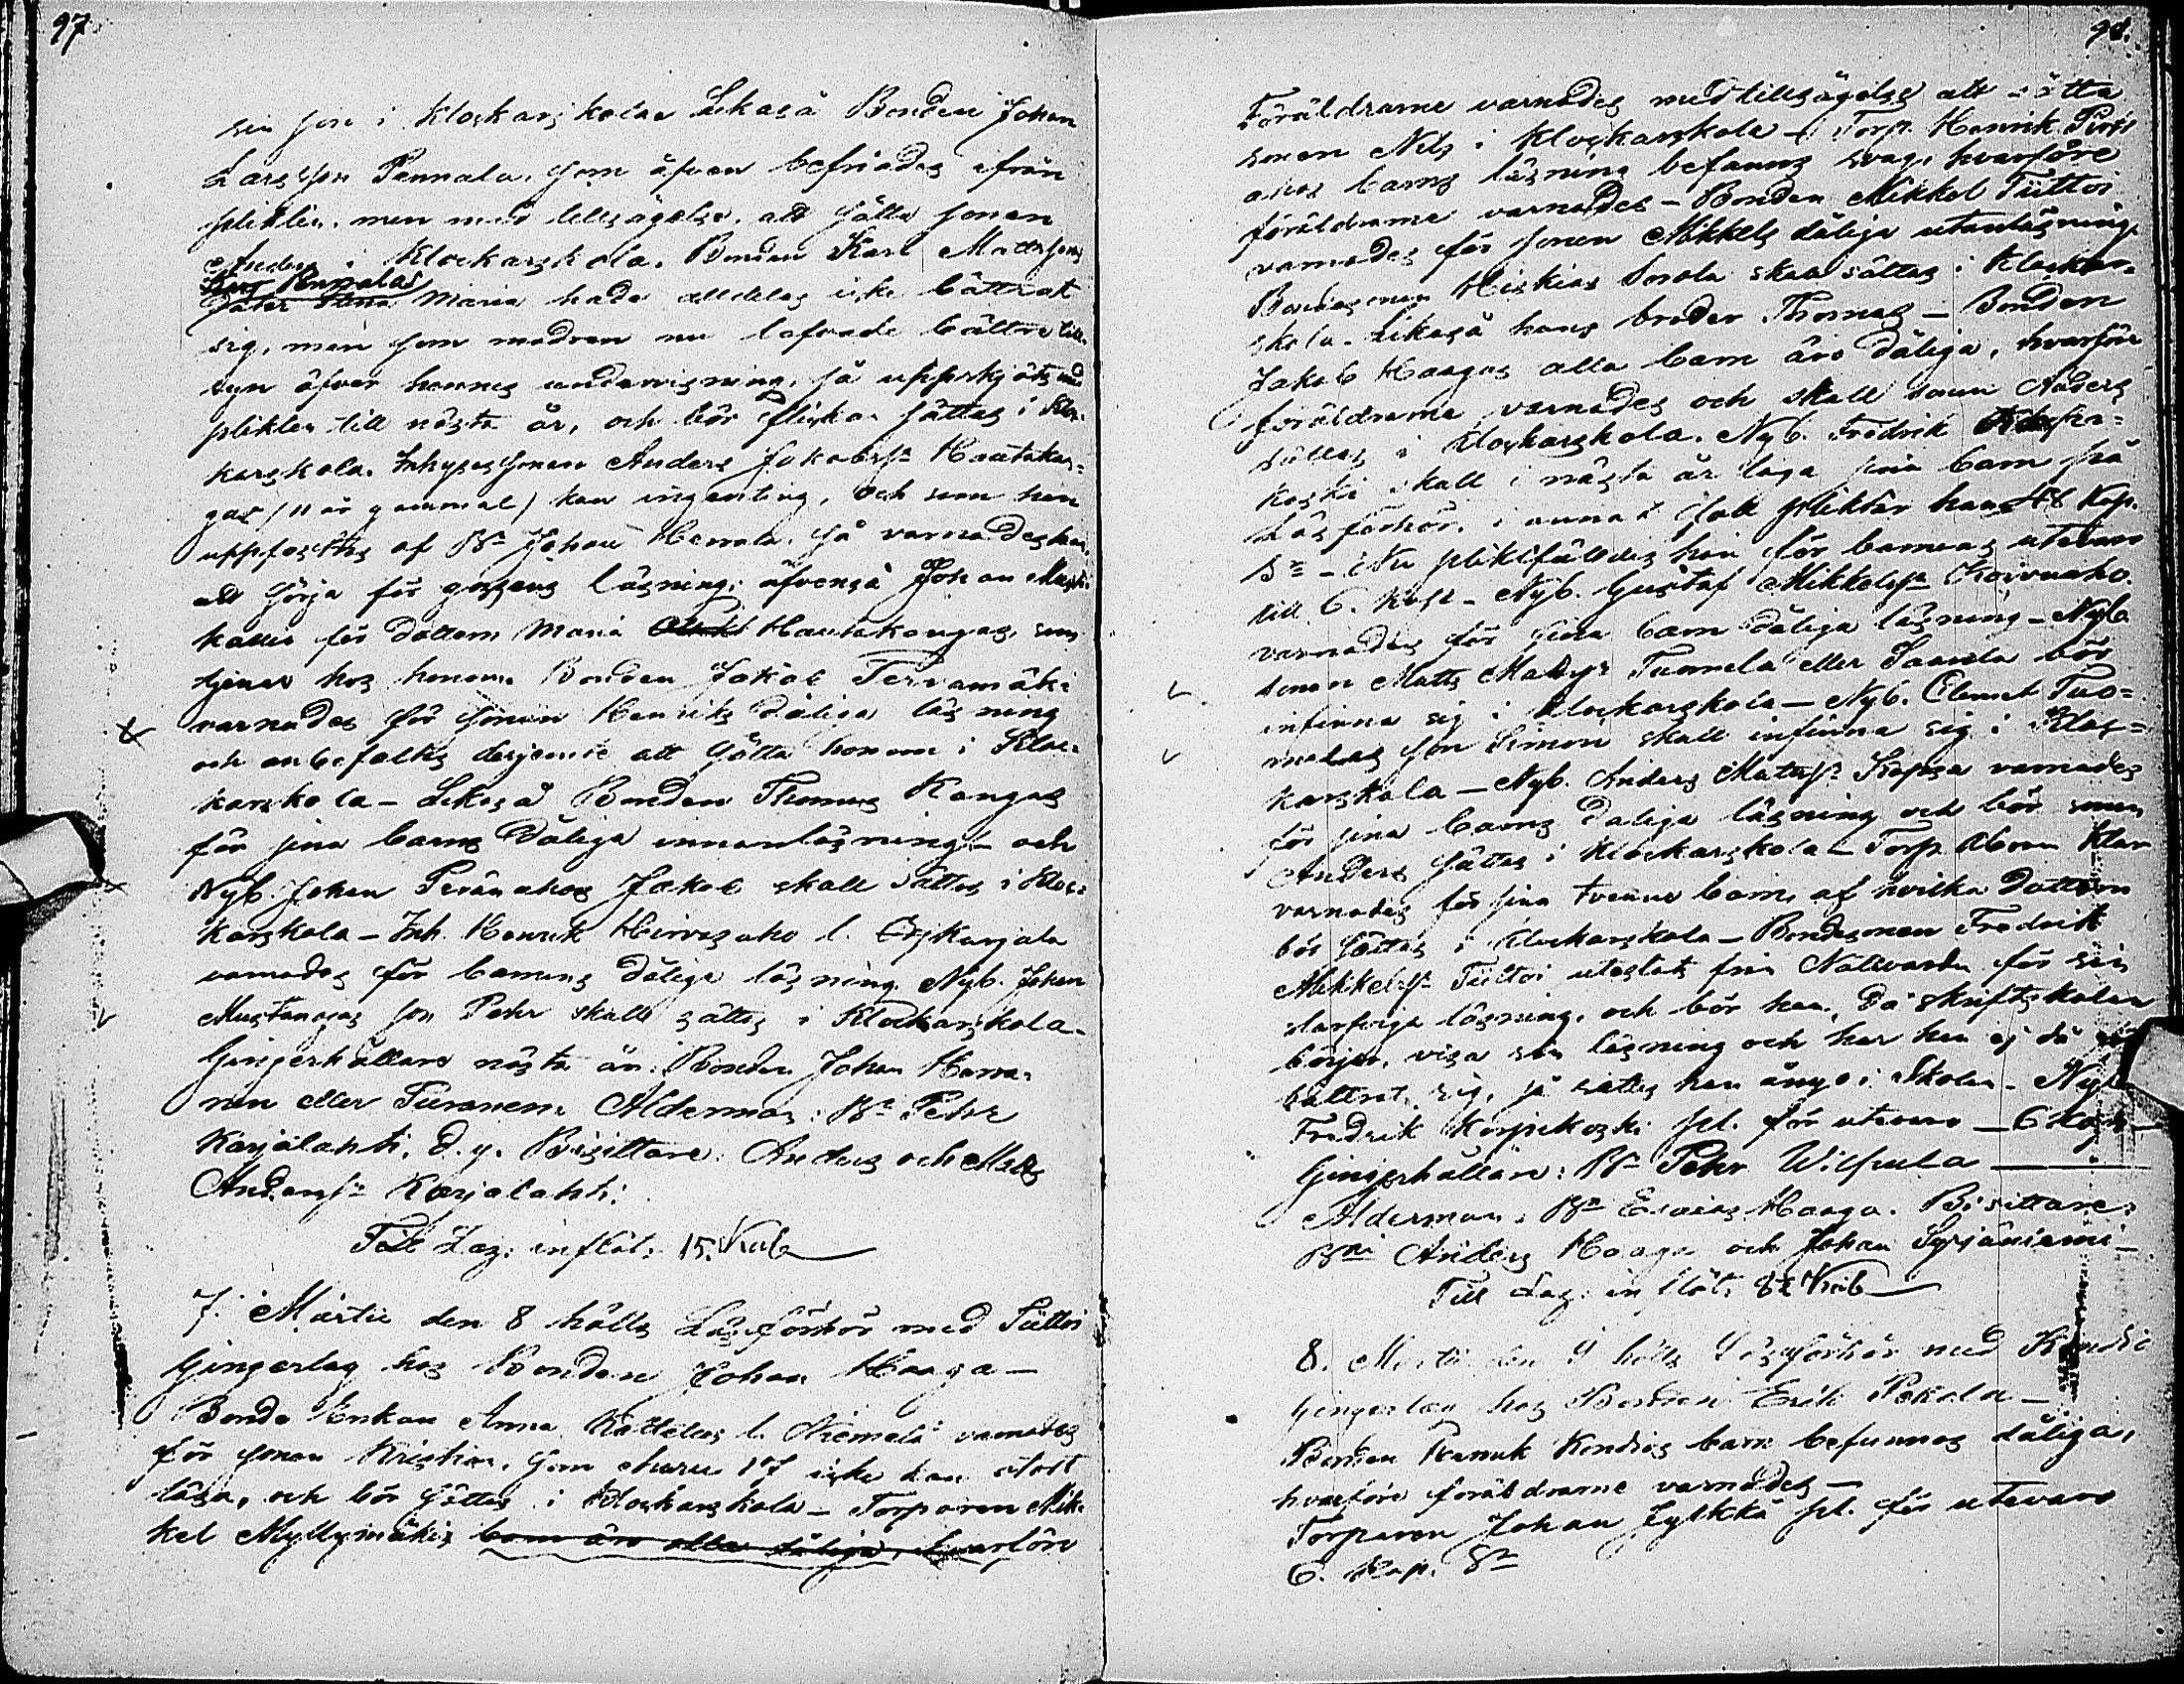 97
sin son i Klockarskolan Likaså Bonden Johan
Larsson Pennala, som äfven befriades ifrån
plikten, men med tillsägelse, att sätta sonen
Anders i Klockarskola. Bonden Karl Mattssons
Maria hade alldeles icke bättrat
sig, men som modren nu lofvade bättre till-
syn öfver hennes undervisning, så uppskjöts med
plikten till nästa år, och bör flickan sättas i Kloc-
karskola. Inhysessonen Anders Jakobss. Hautakan-
gas (11 år gammal) kan ingenting, och som han
uppfostras af Bn Johan Herrala, så varnades han
att sörja för gossens läsning; äfvenså Johan
för dottern Maria Hautakangas, som
tjenar hos honom. Bonden Jakob Tervamäki
varnades för sonen Henriks dåliga läsning
och anbefaltes derjemte att sätta honom i Kloc-
karskola - Likaså Bonden Thomas Kangas
för sina barns dåliga innanläsning - och
Nyb. Johan Peränahos Jakob skall sättas i Kloc-
karskola - Inh. Henrik Hirvasaho l. Karjala
varnades för barnens dåliga läsning. Nyb. Johan
Mustangas son Pehr skall sättas i Klockarskola.
Gingerhållare nästa år: Bonden Johan Harra-
nen eller Turanen. Ålderman: Bn Pehr
Karjalahti, d.y. Bisittare: Anders och Matts
Anderss. Karjalahti.
Till Laz. inflöt: 15. Kub
7. Martii den 8 hölls Läseförhör med Tüttoi
Gingerlag hos Bonden Johan Haaga -
Bonde Enkan Anna Kattelus l. Niemelä varnades
för sonen Kristian, som icke kan
läsa, och bör sättas i Klockarskola - Torparen Mik-
kel Myllymäkis barn äro alla dåliga, hvarföre
98.
Föräldrarne varnades med tillsägelse att sätta
sonen Nils i Klockarskola - Torp. Henrik
barns läsning befanns svag, hvarföre
föräldrarne varnades - Bonden Mikkel Tüttoi
varnades för sonen Mikkels dåliga utanläsning.
Bondesonen Hiskias Sorola skall sättas i Klockar-
skola - Likaså hans broder Thomas - Bonden
Jakob Haagas alla barn äro dåliga, hvarföre
föräldrarne varnades och skall sonen Anders
sättas i Klockarskola. Nyb. Fredrik
koski skall i nästa år taga sina barn på
Läsförhör, i annat fall pliktar han Kop.
Sr - Nu pliktfälldes han för barnens utevaro
till 6. Kop. - Nyb. Gustaf Mikkelss. Koivuaho
varnades för sina barn dåliga läsning - Nyb.
sonen Matts Matss. Tunnela eller Saarela bör
infinna sig i Klockarskola - Nyb. Clemet Tuo-
malas son Simon skall infinna sig i Kloc-
karskola - Nyb. Anders Matss. Kopsa varnades
för sina barns dåliga läsning och bör sonen
Anders sättas i Klockarskola - Torp. Abram
varnades för sina tvenne barn, af hvilka dottern
bör sättas i Klockarskola - Bondesonen Fredrik
Mikkelss. Tüttoi utestäts från Nattvarden för sin
slarfviga läsning, och bör han, då skriftskolan
börjar, visa sin läsning och har han ej då
bättrat sig, så sättes han ånyo i Skolan - Nyb
Fredrik Korpikoski pl. för utevaro - 6 Kop. -
Gingerhållare: Bn Pehr Wilpula
Ålderman: Bn Esaias Haaga. Bisittare:
Bni Anders Haaga och Johan Syrjäniemi -
Till Laz. inflöt: 82 Kub
8. Martii den 9 hölls Läsförhör med Kandic
Gingerlag hos Bonden Erik Pekala -
Bonden Henrik Kondics barn befunnos dåliga,
hvarföre föräldrarne varnades -
Torparen Johan Jylkkä pl. för utevaro
6. Kop. Sr